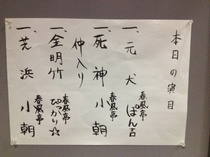 本日の演目
一、元犬 春風亭ぽん吉
一、死神 春風亭小朝
仲入り
一、金明竹 春風亭ぴっかり☆
一、芝浜 春風亭小朝